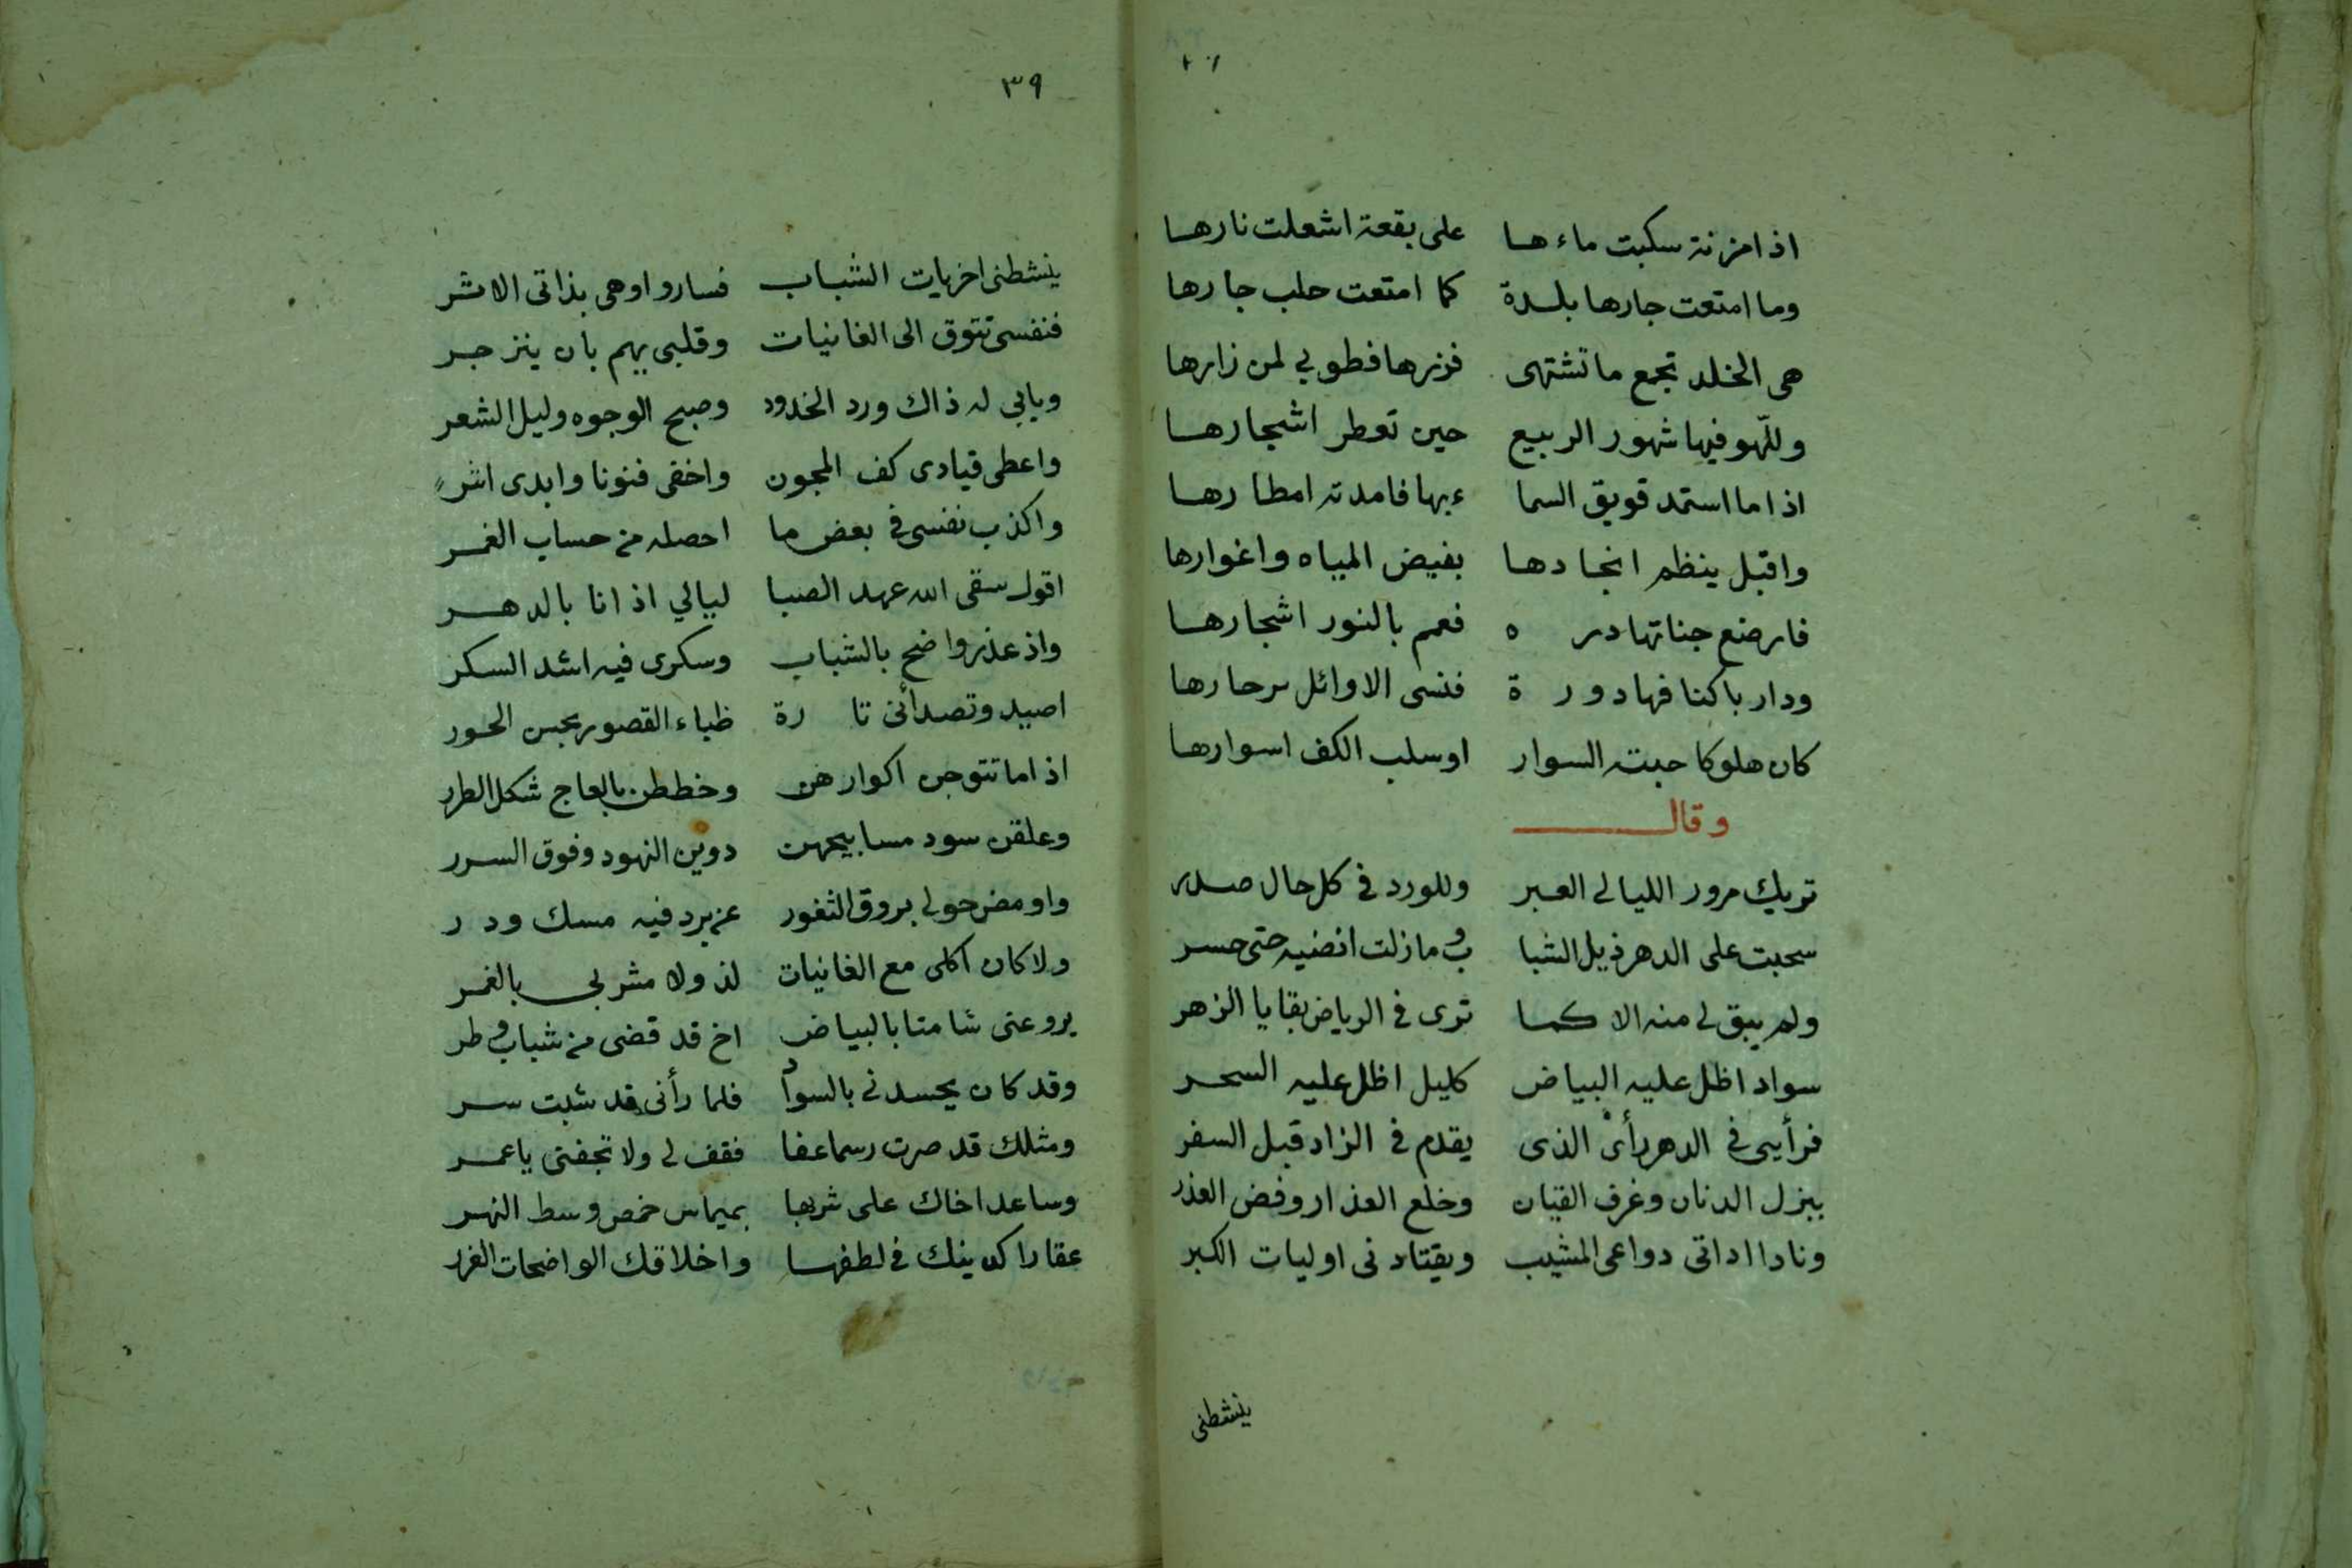 اذا مزنة سكبت ماءها على بقعة اشعلت نارها
وما امتعت جارها بلدة كما امتعت حلب جارها
هى الخلد تجمع ما تشتهى فزرها فطوبي لمن زارها
وللّهو فيها شهور الربيع حين تعطر اشجارها
اذا ما استمد قويق السما ءبها فامدته امطارها
واقبل ينظم انجادها بفيض المياه واغوارها
فارضع جناتها دره فعم بالنور اشجارها
ودار باكنافها دورة فنسى الاوائل برحارها
كان هلوكا حبته السوار اوسلب الكف اسوارها
وقال
تريك مرور الليالي العبر وللورد في كل حال صدر
سحبت على الدهر ذيل الشبا ب وما زلت انضيه حتى حسر
ولم يبق لي منه الا كما ترى في الرياض بقايا الزهر
سواد اظل عليه البياض كليل اظل عليه السحر
فرأيى في الدهر رأى الذى يقدم في الزاد قبل السفر
ببزل الدنان وغرف القيان وخلع العذار وفض العذر
ونادا اداتى دواعى المشيب ويقتادنى اوليات الكبر
ينشطنى
٣٩
ينشطنى اخريات الشباب فسارو اوهى بذاتى الاشر
فنفسى تتوق الى الغانيات وقلبى يهم بان ينزجر
ويابي له ذاك ورد الخدود وصبح الوجوه وليل الشعر
واعطى قيادى كف المجون واخفى فنونا وابدى اشر
واكذب نفسى في بعض ما احصله من حساب الغمر
اقول سقى الله عهد الصبا ليالي اذ انا بالدهر
واذ عذر واضح بالشباب وسكرى فيه اشد السكر
اصيد وتصدأنى تارة ظباء القصور بجبس الحور
اذا ما تتوجن اكوارهن وخططن بالعاج شكل الطرر
وعلقن سود مسابيحهن دوين النهود وفوق السرر
واومض حولي بروق الثغور عن برد فيه مسك ودر
ولا كان اكلى مع الغانيات لذ ولا مشربي بالغمر
يروعنى شامتا بالبياض اخ قد قضى من شباب وطر
وقد كان يحسدني بالسواد فلما رأنى قد شبت سر
ومثلك قد صرت رسما عفا فقف لي ولا تجفنى يا عمر
وساعد اخاك على شربها بميماس حمص وسط النهر
عقارا كدينك في لطفها واخلاقك الواضحات الغرر